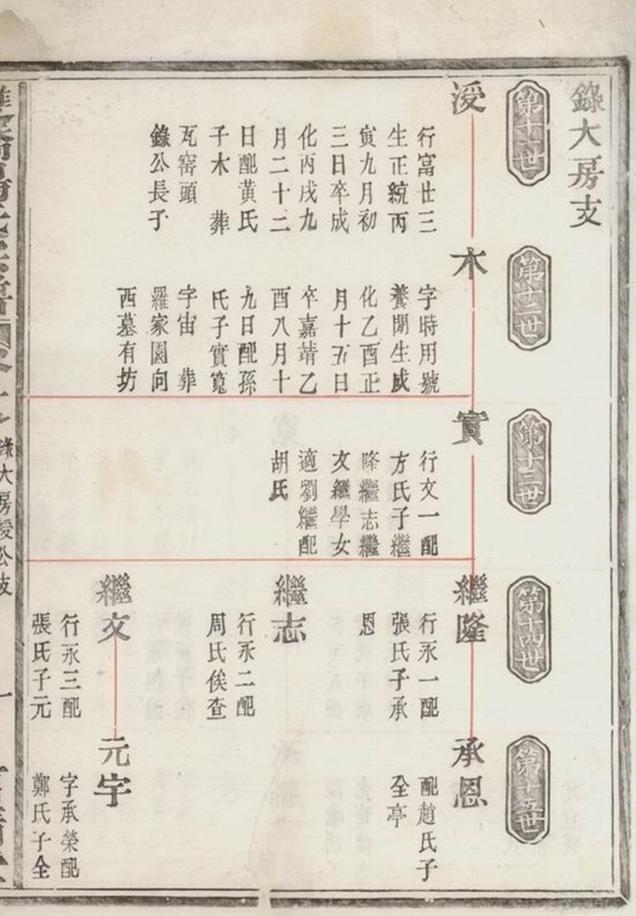 錄大房支
第十一世
行富廿三
生正統丙
寅九月初
三日卒成
化丙戌九
月二十二
日配黃氏
子木 葬
瓦窰頭
錄公長子
第十二世
木
字時用號
養閒生成
化乙酉正
月十五日
卒嘉靖乙
酉八月十
九日配孫
氏子實寬
宇宙 葬
羅家園向
西墓有坊
第十三世
實
行文一配
方氏子繼
隆繼志繼
文繼學女
適劉繼配
胡氏
第十四世
繼隆
行永一配
張氏子承
恩
繼志
行永二配
周氏俟查
繼文
行永三配
張氏子元
第十五世
承恩
配趙氏子
全亭
元宇
字承榮配
鄭氏子全
錄大房 公支
一